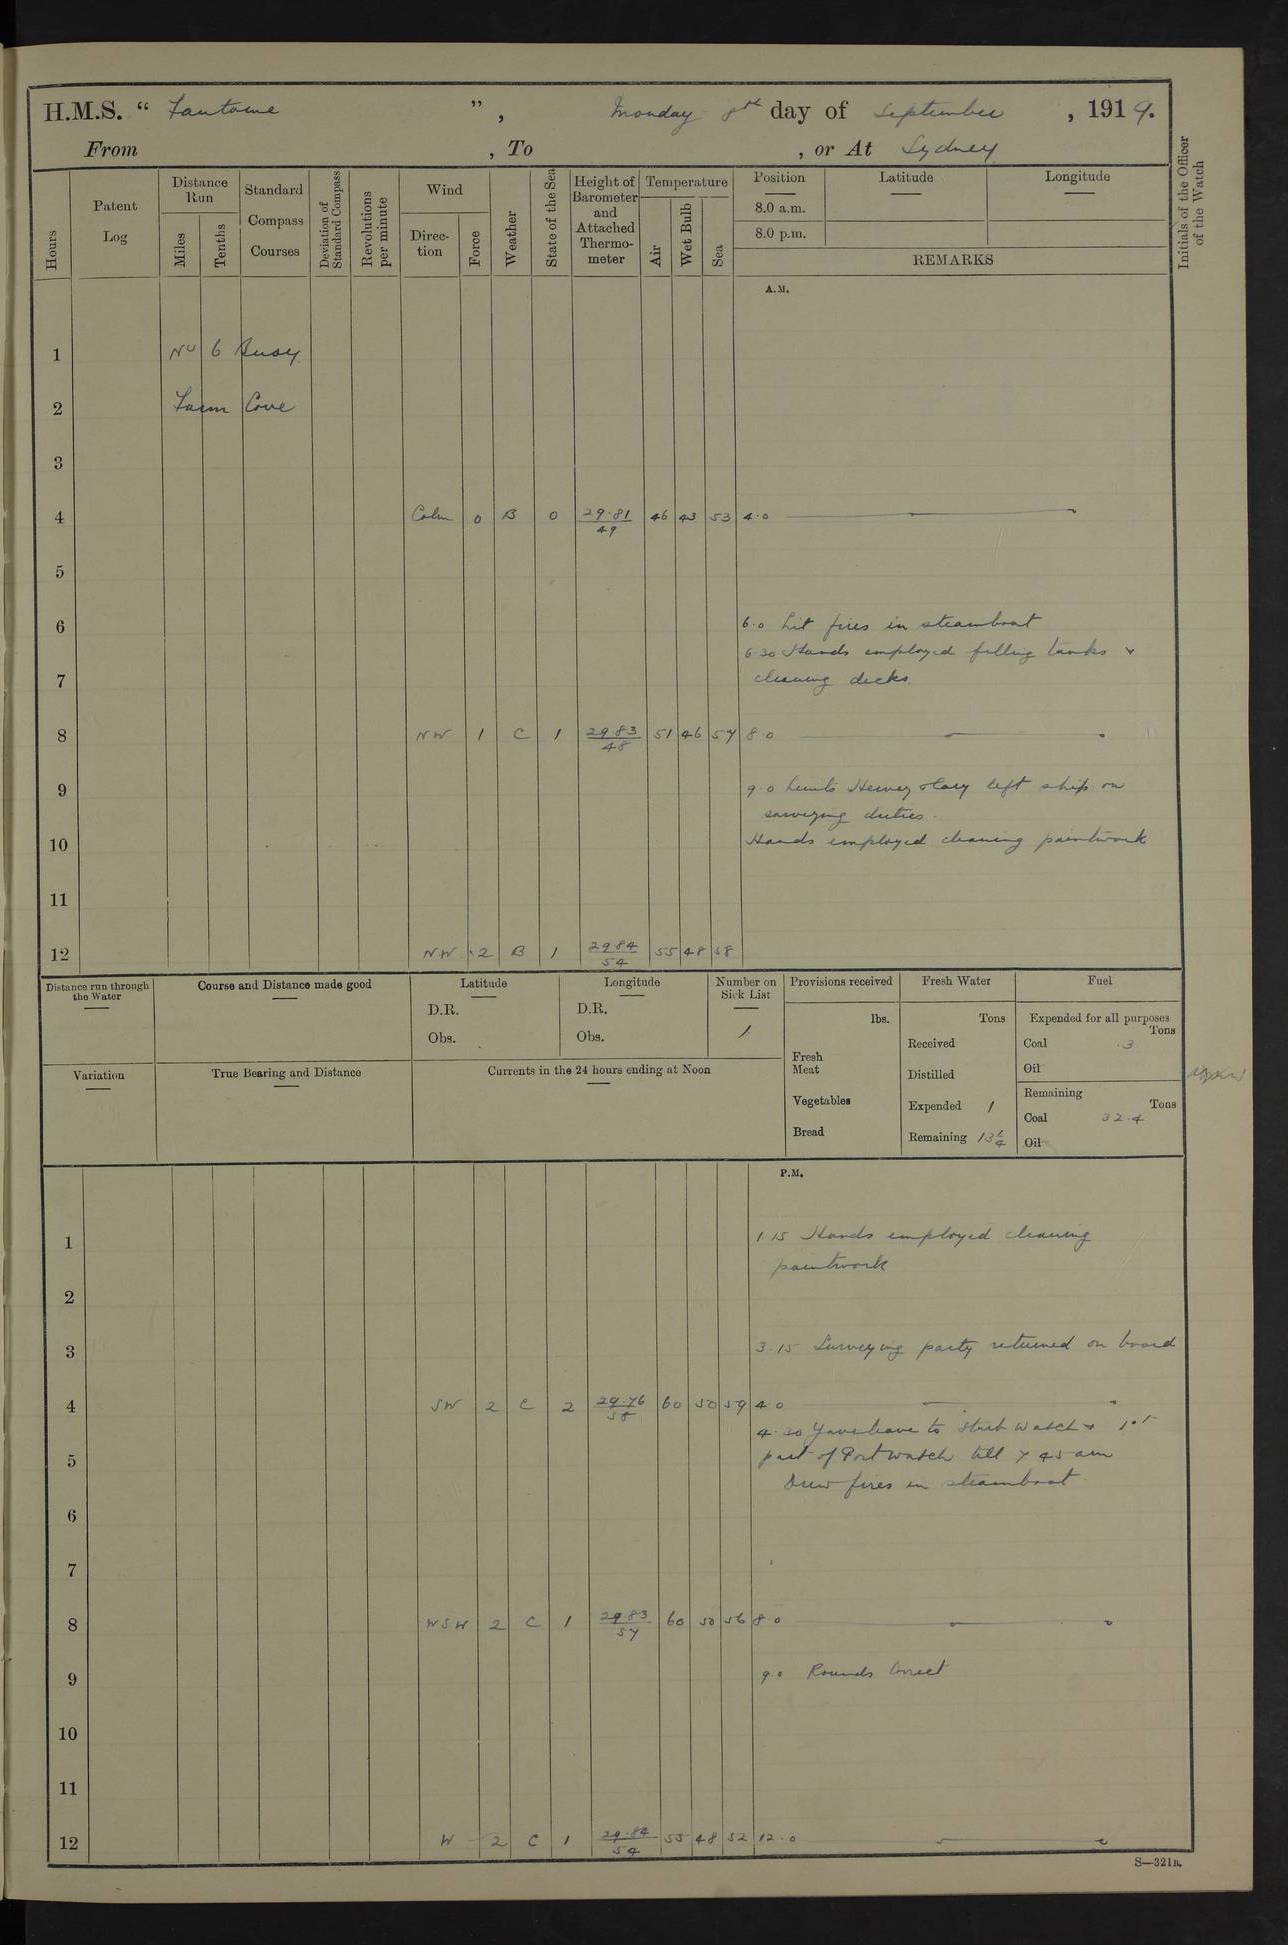 H.M.S. " Fantome ", Monday 8th day of September, 1919.
From , To , or At Sydney
Hours
Patent Log
Distance Run
Miles
Tenths
Standard Compass Courses
Deviation of Standard Compass
Revolutions per minute
Wind
Direction
Force
Weather
State of the Sea
Height of Barometer and Attached Thermometer
Temperature
Air
Wet Bulb
Sea
Position
Latitude
Longitude
8.0 a.m.
8.0 p.m.
REMARKS
Initials of the Officer of the Watch
A.M.
1 No 6 Buoy
2 Farm Cove
3
4 Calm 0 B 0 29.81/49 46 43 53 4.0
5
6 6.0 Lit fires in steamboat
6 30 Hands employed filling tanks &
7 cleaning decks.
8 NW 1 C 1 29 83/48 51 46 57 8 0
9 9.0 Lieuts Hervey & left ship on
surveying duties.
10 Hands employed cleaning paintwork
11
12 NW 2 B 1 29.84/54 55 48 58
Distance run through the Water
Course and Distance made good
Latitude
D.R.
Obs.
Longitude
D.R.
Obs.
Number on Sick List
1
Provisions received
lbs.
Fresh Meat
Vegetables
Bread
Fresh Water
Tons
Received
Distilled
Expended 1
Remaining
Fuel
Expended for all purposes
Tons
Coal .3
Oil
Remaining
Tons
Coal 32.4
Oil
Variation
True Bearing and Distance
Currents in the 24 hours ending at Noon
P.M.
1 1.15 Hands employed cleaning
paintwork
2
3 3.15 Surveying party returned on board
4 SW 2 C 2 29.76/58 60 50 59 4 0
4.30 Gave leave to Starb watch & 1st
5 part of Port watch till 7 45 am
Drew fires in steamboat
6
7
8 WSW 2 C 1 29 83/57 60 50 56 8 0
9 9.0 Rounds Correct
10
11
12 W 2 C 1 29.84/54 55 48 52 12.0
S—321B.